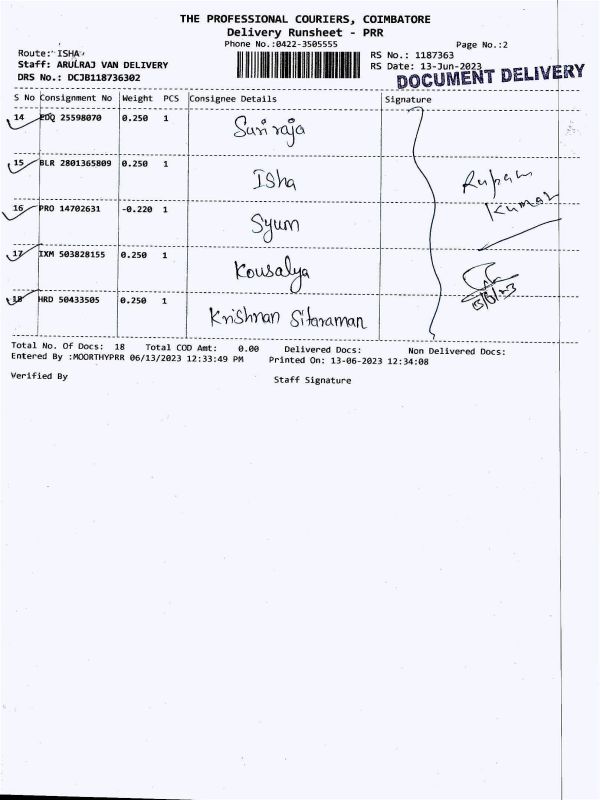 THE PROFESSIONAL COURIERS, COIMBATORE
Delivery Runsheet - PRR
Phone No.:0422-3505555 Page No.:2
Route: ISHA RS No.: 1187363
Staff: ARULRAJ VAN DELIVERY RS Date: 13-Jun-2023
DRS No.: DCJB118736302 DOCUMENT DELIVERY
S No Consignment No Weight PCS Consignee Details Signature
14 EDQ 25598070 0.250 1 Suriraja
15 BLR 2801365809 0.250 1 Isha
Rupam
Kumar
16 PRO 14702631 -0.220 1 Syum
17 IXM 503828155 0.250 1 Kousalya
13/6/23
18 HRD 50433505 0.250 1 Krishnan Sitaraman
Total No. Of Docs: 18 Total COD Amt: 0.00 Delivered Docs: Non Delivered Docs:
Entered By :MOORTHYPRR 06/13/2023 12:33:49 PM Printed On: 13-06-2023 12:34:08
Verified By Staff Signature